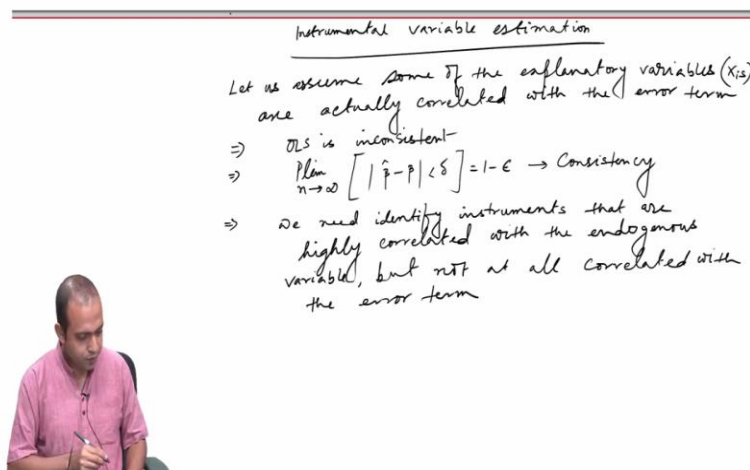 Instrumental variable estimation
Let us assume some of the explanatory variables (Xis)
are actually correlated with the error term
⇒ OLS is inconsistent
⇒ Plim n→∞ [|β̂ - β| < δ] = 1 - ϵ → Consistency
⇒ We need identify instruments that are
highly correlated with the endogenous
variable, but not at all correlated with
the error term